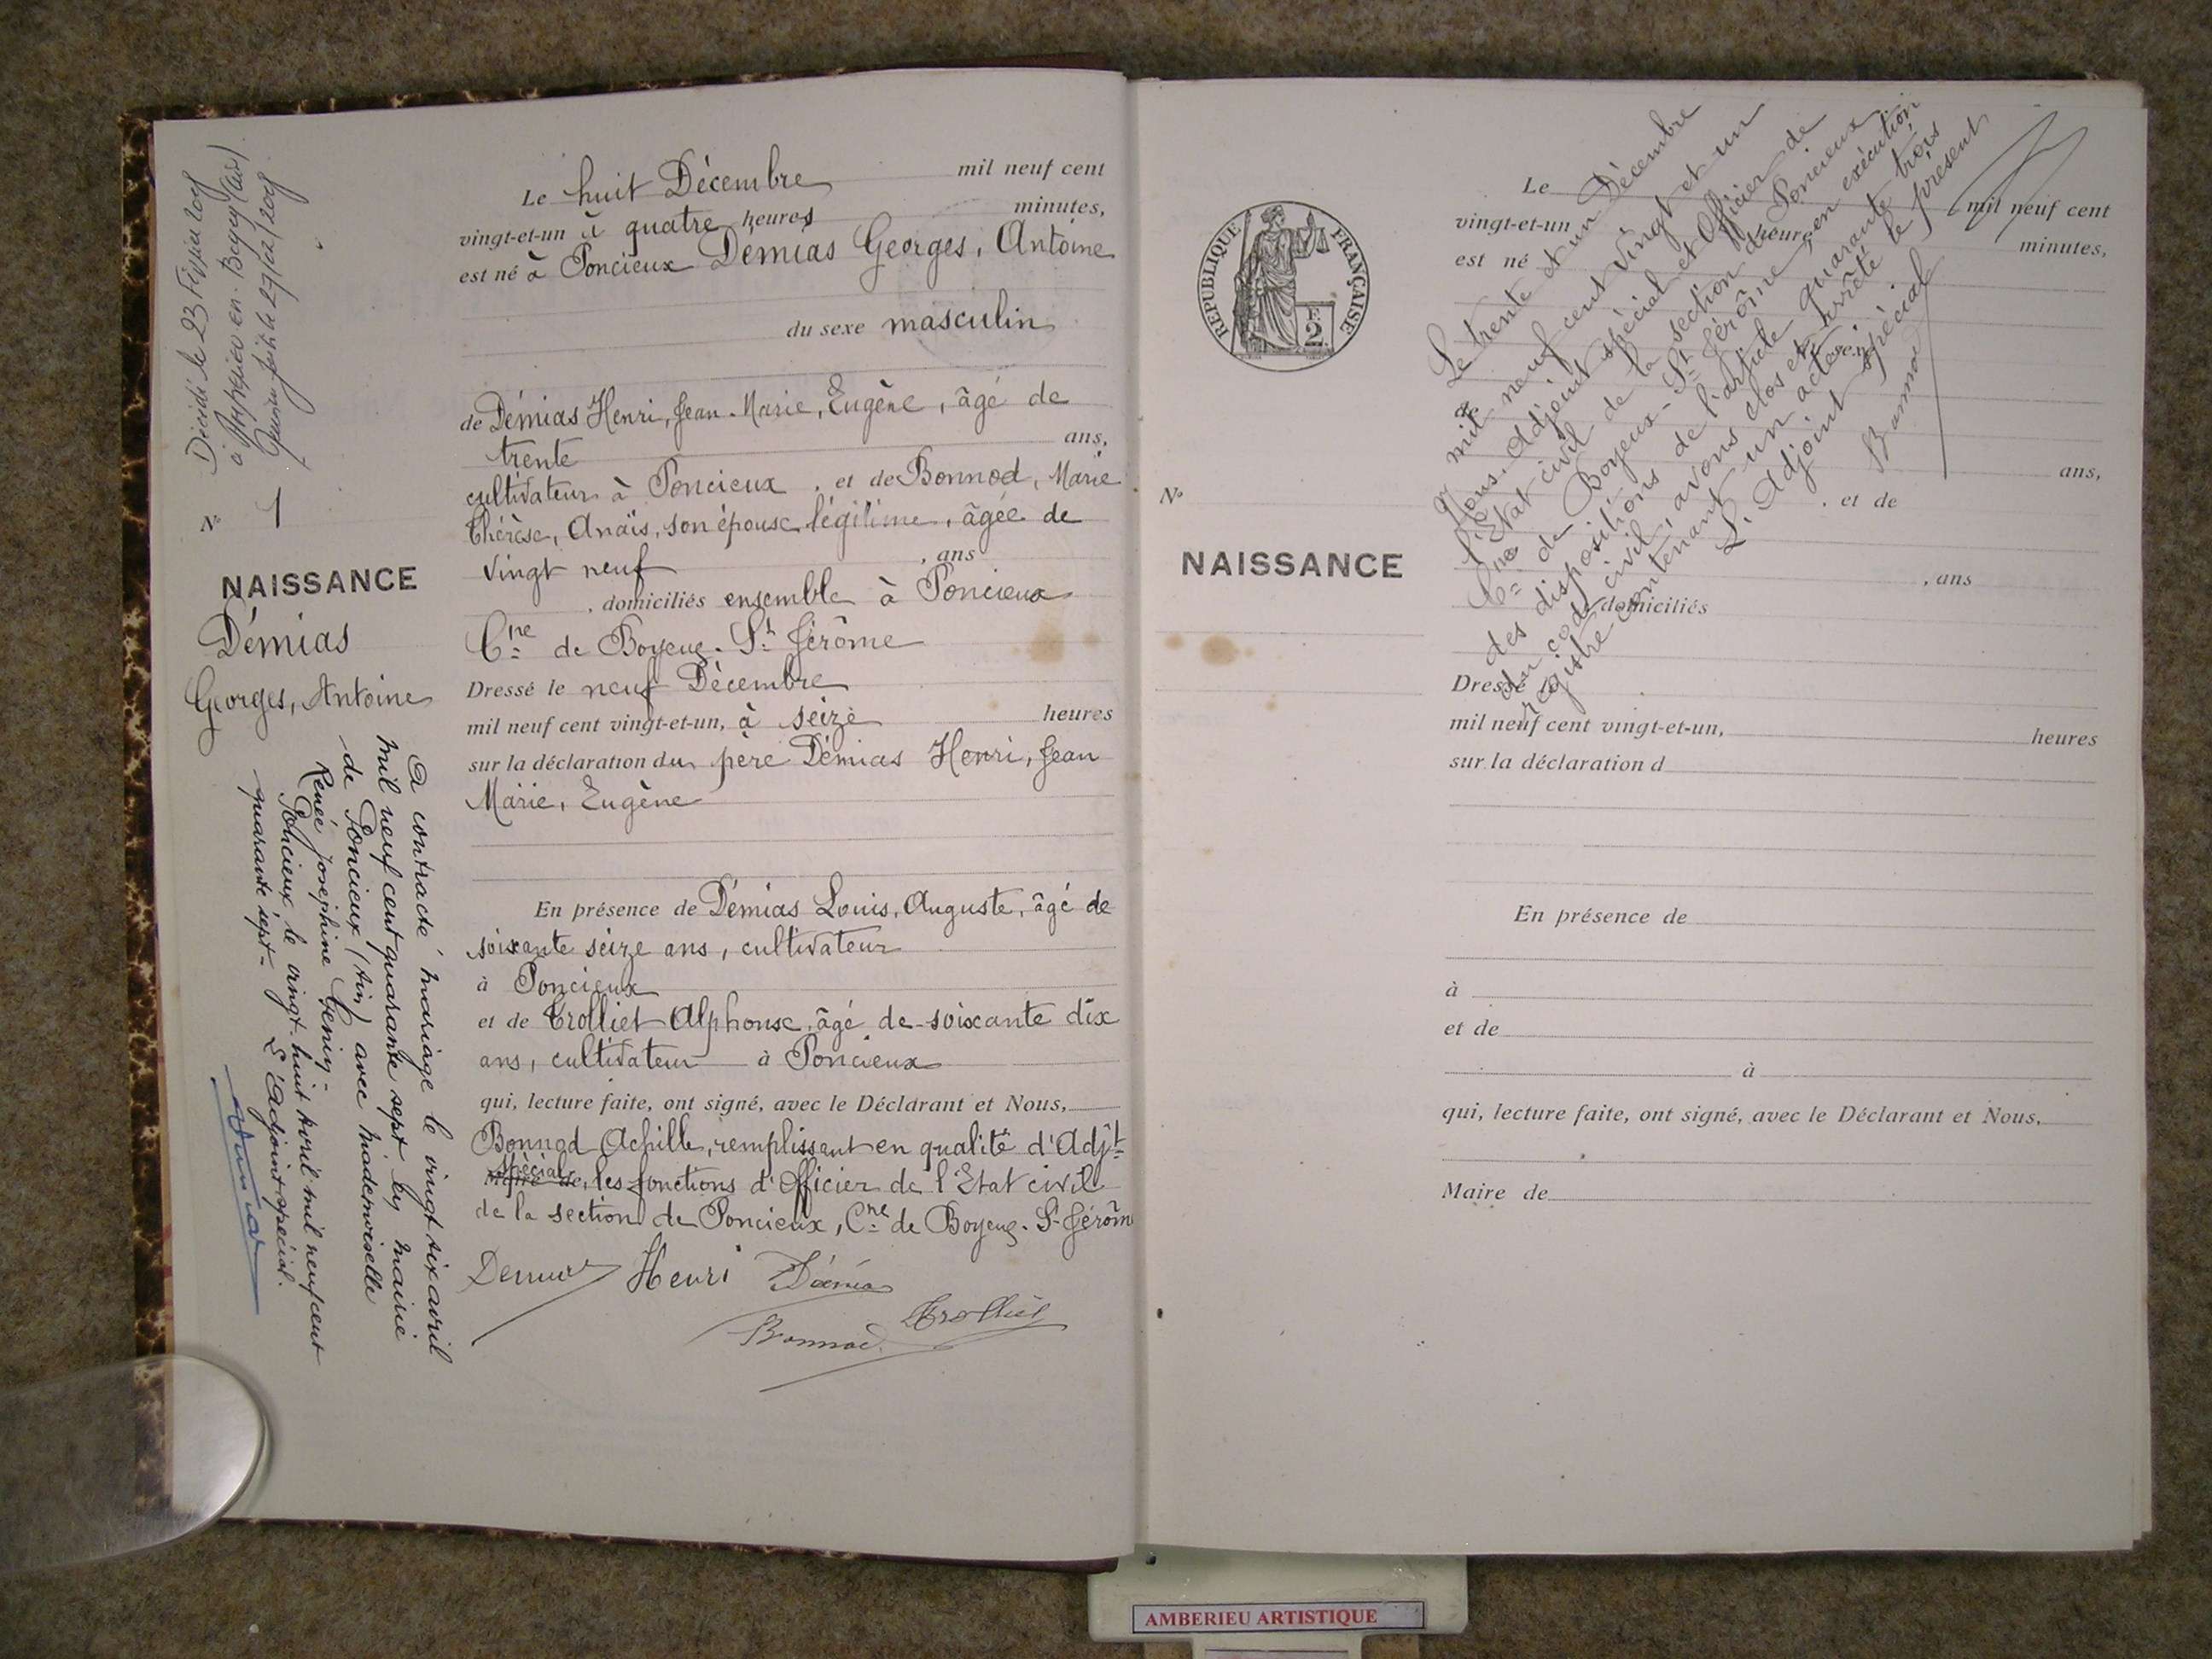 Décédé le 23 Février
à Ambérieu en Bugey (Ain).
N° 1
NAISSANCE
Démias
Georges, Antoine
A contracté mariage le vingt six avril
mil neuf cent quarante sept en mairie
de Poncieux (Ain) avec mademoiselle
Renée Joséphine Genin -
Poncieux le vingt-huit Avril mil neuf cent
quarante sept - L'Adjoint spécial.
Le huit Décembre mil neuf cent
vingt-et-un à quatre heures minutes,
est né à Poncieux Démias Georges, Antoine
du sexe masculin
de Démias Henri, Jean-Marie, Eugène, âgé de
trente ans,
cultivateur à Poncieux, et de Bonnod, Marie
Thérèse, Anaïs, son épouse légitime, âgée de
vingt neuf, ans
, domiciliés ensemble à Poncieux
Cne de Boyeux-St Jérôme
Dressé le neuf Décembre
mil neuf cent vingt-et-un, à seize heures
sur la déclaration du père Démias Henri, Jean
Marie, Eugène
En présence de Démias Louis, Auguste, âgé de
soixante seize ans, cultivateur
à Poncieux
et de Trolliet Alphonse, âgé de soixante dix
ans, cultivateur à Poncieux
qui, lecture faite, ont signé, avec le Déclarant et Nous,
Bonnod Achille, remplissant en qualité d'Adjt
spécial Maire de, les fonctions d'Officier de l'Etat civil
de la section de Poncieux, Cne de Boyeux-St-Jérôme
Henri Démias
Trolliet
Bonnod
RÉPUBLIQUE FRANÇAISE
E.
2.
N°
NAISSANCE
Le mil neuf cent
vingt-et-un heure minutes,
est né
du sexe
de
ans,
, et de
, ans
domiciliés
Dressé le
mil neuf cent vingt-et-un, heures
sur la déclaration d
En présence de
à
et de
à
qui, lecture faite, ont signé, avec le Déclarant et Nous,
Maire de
Le trente et un Décembre
mil neuf cent vingt et un
Nous, Adjoint spécial et Officier de
l'Etat civil de la section de Poncieux
Cne de Boyeux-St Jérôme, en exécution
des dispositions de l'article quarante trois
du code civil, avons clos et arrêté le présent
registre contenant un acte.
L'Adjoint spécial
Bonnod
AMBERIEU ARTISTIQUE